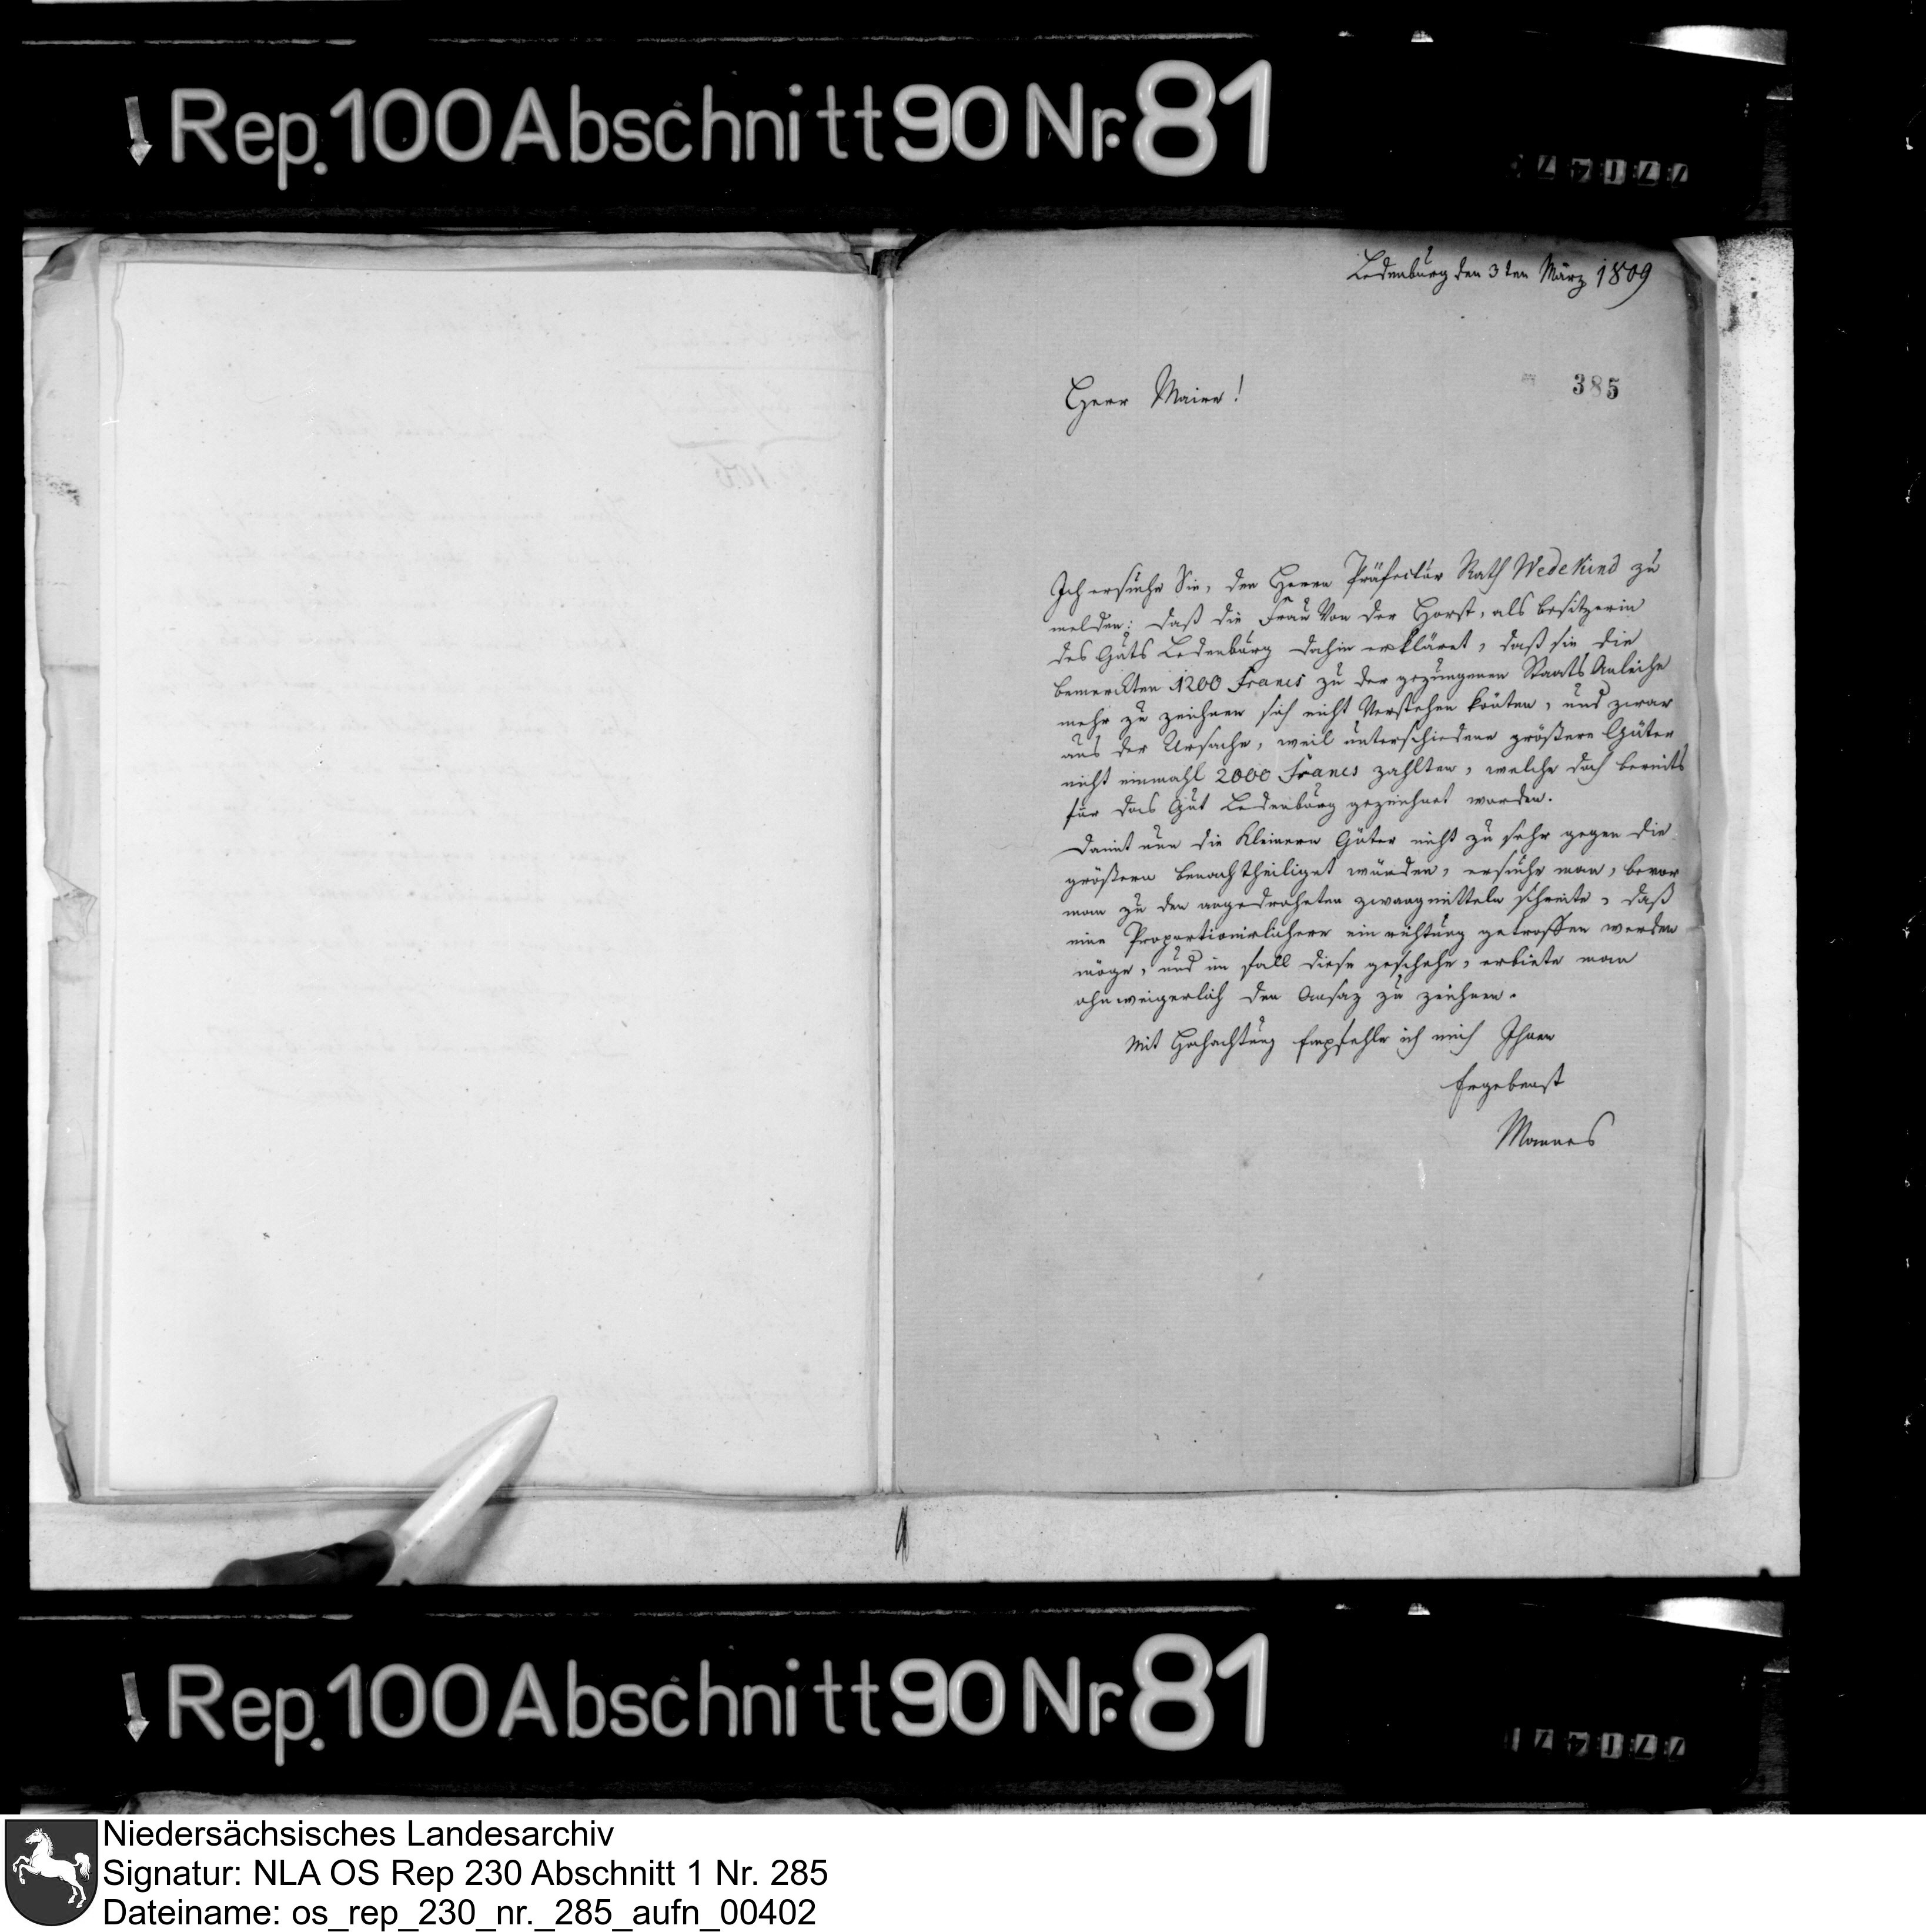 Rep. 100 Abschnitt 90 Nr. 81
Ledenburg den 3ten März 1809
385
Herr Maire!
Ich ersuche Sie, den Herrn Präfectur Rath Wedekind zu
melden: daß die Frau Von der Horst, als besitzerin
des Guts Ledenburg dahin erkläret, daß sie die
bemerckten 1200 Francs zu der gezungenen Staats Anleihe
mehr zu zeichnen sich nicht Verstehen könten, und zwar
aus der Ursache, weil unterschiedene größere Güter
nicht einmahl 2000 Francs zahlten, welche doch bereits
für das Gut Ledenburg gezeichnet worden.
Damit nun die Kleinern Güter nicht zu sehr gegen die
größern benachtheiliget würden, ersuche man, bevor
man zu den angedroheten zwangmitteln schreite, daß
eine Proportionirlichere einrichtung getroffen werden
möge, und im fall diese geschehe, erbiete man
ohnweigerlich den Ansaz zu zeichnen.
Mit Hochachtung Empfehle ich mich Ihnen
Ergebenst
Mannes
Rep. 100 Abschnitt 90 Nr. 81
Niedersächsisches Landesarchiv
Signatur: NLA OS Rep 230 Abschnitt 1 Nr. 285
Dateiname: os_rep_230_nr._285_aufn_00402